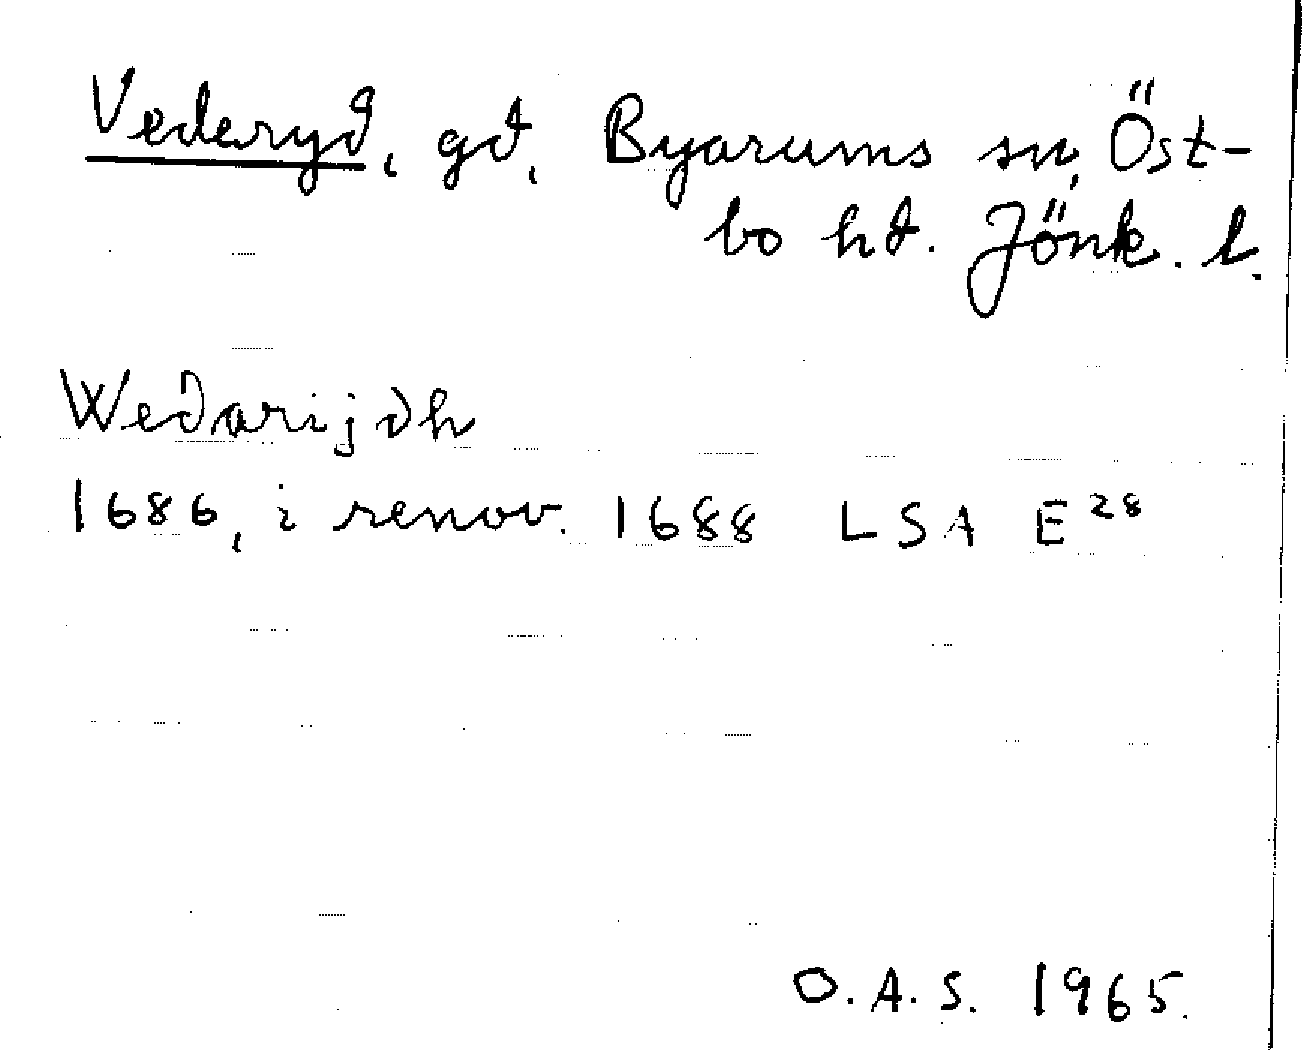 Vederyd, gd, Byarums sn, Öst-
bo hd. Jönk. l.
Wedarijdh
1686, i renov. 1688 LSA E²⁸
O.A.S. 1965.